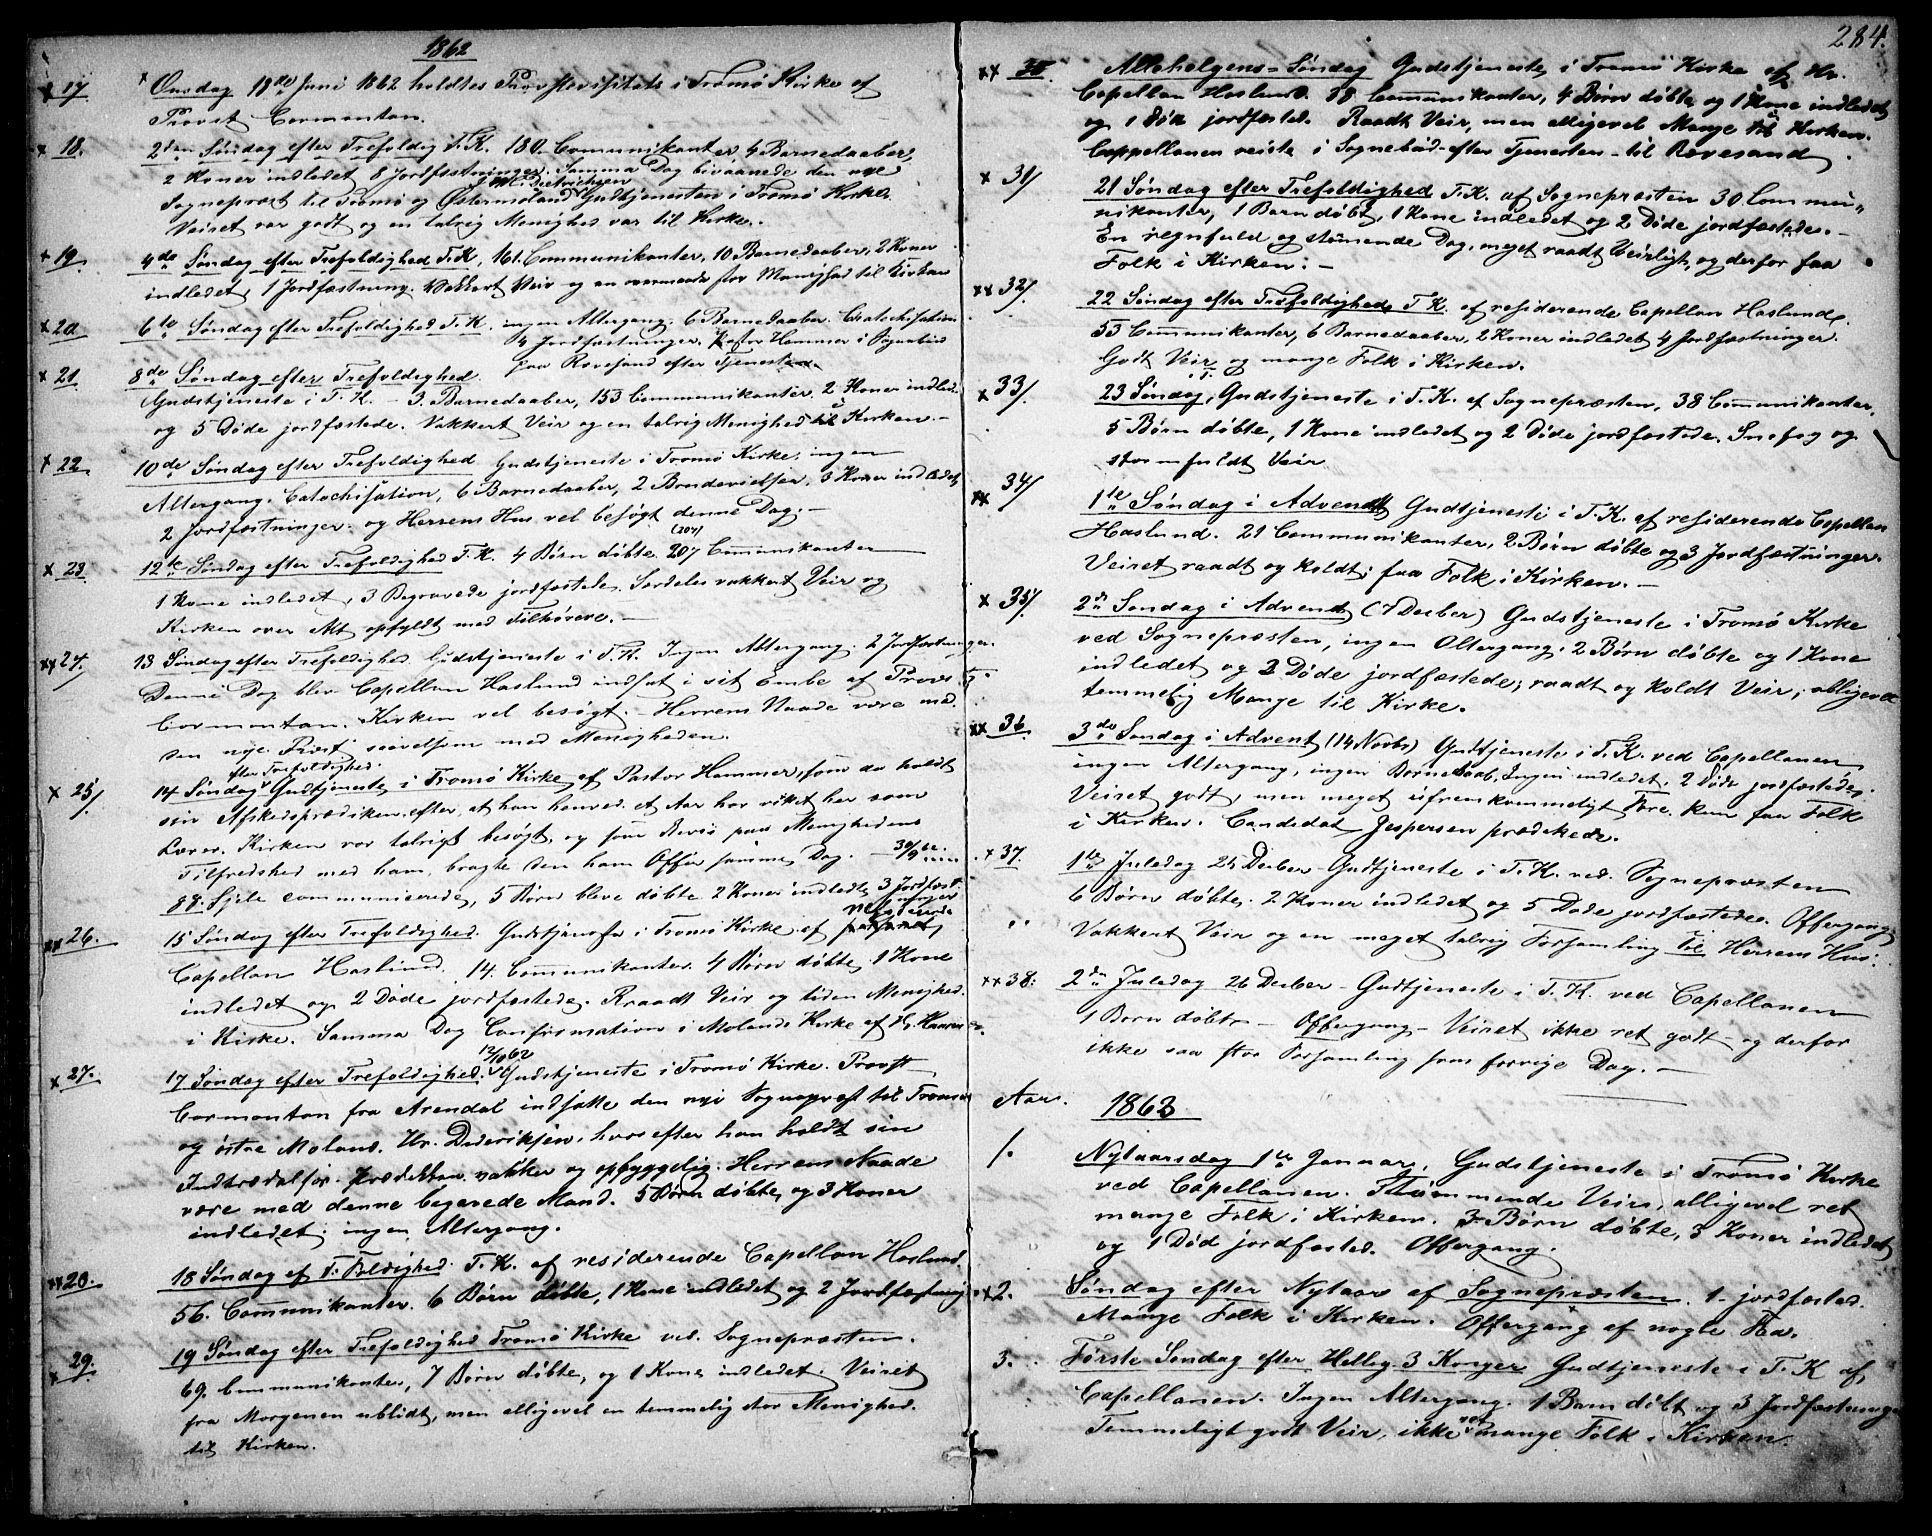 1862
x 17. Onsdag 18de Juni 1862 holdtes Provstevisitats i Tromø Kirke af
Provst Cormontan.
x 18. 2den Søndag efter Trefoldig T.K. 180 Communikanter, 4 Barnedaaber,
2 Koner indledet 8 Jordfæstninger. Samma Dag bivaanede den nye
Sognepræst til Tromø og Østermoland Gudtjenesten i Tromø Kirke.
Veiret var godt og en talrig Menighed var til Kirke.
x 19. 4de Søndag efter Trefoldighed T.K, 161 Communikanter, 10 Barnedaaber, 2 Koner
indledet, 1 Jordfæstning. Vakkert Veir og en overmaade stor Menighed til Kirken
x 20. 6te Søndag efter Trefoldighed T.K. ingen Altergang. 6 Barnedaaber. Catachisation
4 Jordfæstninger, Pastor Hammer i Sognebud
paa Revesand efter Tjenesten
x 21. 8de Søndag efter Trefoldighed.
Gudstjeneste i T.K. - 3 Barnedaaber, 153 Communikanter, 2 Koner indled.
og 5 Døde jordfæstede. Vakkert Veir og en talrig Menighed til Kirken. -
x 22. 10de Søndag efter Trefoldighed Gudstjeneste i Tromø Kirke, ingen
Altergang. Catachisation, 6 Barnedaaber, 2 Brudevielser, 3 Koner indledet,
2 Jordfæstninger. og Herrens Hus vel besøgt denne Dag. -
(207)
x 23. 12te Søndag efter Trefoldighed T.K. 4 Børn døbte 207 Communikanter
1 Kone indledet, 3 Begravede jordfæstede. Særdeles vakkert Veir og
Kirken over Alt opfyldt med Tilhørere. -
xx 24. 13 Søndag efter Trefoldighed. Gudstjeneste i T.K. Ingen Altergang. 2 Jordfæstninger.
Denne Dag blev Capellan Haslund indsat i sit Embe af Provst
Cormontan. Kirken vel besøgt. - Herrens Naade være med
den nye Præst saavelsom med Menigheden.
efter Trefoldighed.
x 25/ 14 Søndag Gudtjeneste i Tromø Kirke af Pastor Hammer, som da holdt
sin Afskedsprædiken, efter at han henved et Aar har virket her som
Lærer. Kirken var talrigt besøgt, og som Bevis paa Menighedens
Tilfredshed med ham, bragte den ham Offer samme Dag.
88 Sjele communicerede, 5 Børn bleve døbte 2 Koner indledte 3 Jordfæst-
ninger
residerende
xx 26. 15 Søndag efter Trefoldighed. Gudstjeneste i Tromø Kirke af
Capellan Haslund. 14 Communikanter. 4 Børn døbte, 1 Kone
indledet og 2 Døde jordfæstede. Raadt Veir og liden Menighed
i Kirke. Samma Dag Confirmation i Molands Kirke af H. Hammer.
12/10 62
x 27. 17 Søndag efter Trefoldighed. Gudstjeneste i Tromø Kirke. Provst
Cormontan fra Arendal indsatte den nye Sognepræst til Tromø
og østre Moland. Hr. Dederiksen, hvorefter han holdt sin
Indtrædelsprædiken vakker og opbyggelig. Herrens Naade
være med denne begavede Mand. 5 Børn døbte, og 3 Koner
indledet, ingen Altergang.
xx 28. 18 Søndag ef T. Foldighed. T.K. af residerende Capellan Haslund.
56. Communikanter. 6 Børn døbte, 1 Kone indledet og 2 Jordfæstning
x 29. 19 Søndag efter Trefoldighed Tromø Kirke ved Sognepræsten.
69. Communikanter, 7 Børn døbte, og 1 Kone indledet. Veiret
fra Morgenen ublidt, men alligevel en temmelig stor Menighed.
til Kirken.
284.
xx 30. Allehelgens-Søndag Gudstjeneste i Tromø Kirke af Hr.
Capellan Haslund. 38 Communikanter, 4 Børn døbte og 1 Kone indledet
og 1 Død jordfæsted. Raadt Veir, men alligevel Mange til Kirken.
Cappellanen reiste i Sognebud efter Tjenesten - til Revesand.
x 31/ 21 Søndag efter Trefoldighed T.K. af Sognepræsten 30 Commu-
nikanter, 1 Barn døbt, 1 Kone indledet og 2 Døde jordfæstede. -
En regnfuld og stormende Dag, meget raadt Veirligt, og derfor faa
Folk i Kirken. -
xx 32/ 22 Søndag efter Trefoldighed T.K. af residerende Capellan Haslund.
53 Communikanter, 6 Barnedaaber, 2 Koner indledet 4 Jordfæstninger.
Godt Veir og mange Folk i Kirken.
x 33/ 23 Søndag, Gudstjeneste i T.K. af Sognepræsten, 38 Communikanter,
5 Børn døbte, 1 Kone indledet og 2 Døde jordfæstede. Snefog og
stormfuldt Veir
xx 34/ 1te Søndag i Advendt Gudtjeneste i T.K. af residerende Capellan
Haslund. 21 Communikanter, 2 Børn døbte og 3 Jordfæstninger.
Veiret raadt og koldt; faa Folk i Kirken. -
x 35/ 2de Søndag i Advendt (7 Decber) Gudstjeneste i Tromø Kirke
ved Sognepræsten, ingen Altergang. 2 Børn døbte og 1 Kone
indledet og 3 Døde jordfæstede; raadt og koldt Veir, alligevel
temmelig Mange til Kirke.
xx 36. 3de Søndag i Advent (14 Novbr) Gudtjeneste i T.K. ved Capellanen
ingen Altergang, ingen Barnedaab, Ingen indledet, 2 Døde jordfæstede.
Veiret godt, men meget ufremkommeligt Føre, kun faa Folk
i Kirken. Candidat Jespersen prædikede.
x 37. 1te Juledag 25 Decber Gudtjeneste i T.K. ved Sognepræsten
6 Børn døbte. 2 Koner indledet og 5 Døde jordfæstede. Offergang
Vakkert Veir og en meget talrig Forsamling til Herrens Hus.
xx 38. 2den Juledag 26 Decber - Gudtjeneste i T.K. ved Capellanen
1 Barn døbt - Offergang - Veiret ikke ret godt - og derfor
ikke saa stor Forsamling som forrige Dag. -
Aar. 1863
1. Nytaarsdag 1te Januar, Gudstjeneste i Tromø Kirke
ved Capellanen. Strømmende Veir, alligevel ret
mange Folk i Kirken. 3 Børn døbte, 3 Koner indledet
og 1 Død jordfæsted. Offergang.
x 2. Søndag efter Nytaar af Sognepræsten. 1 jordfæsted.
Mange Folk i Kirken. Offergang af nogle Faa.
3. Første Søndag efter Hellig 3 Konger Gudtjeneste i T.K af
Capellanen. Ingen Altergang. 1 Barn døbt og 3 Jordfæstninger
Temmeligt godt Veir, ikke ret mange Folk i Kirken.